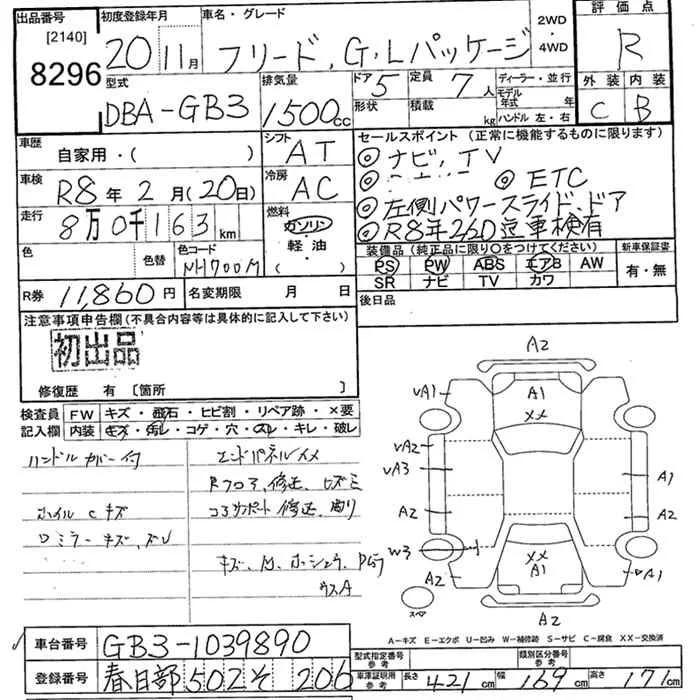 出品番号
[2140]
8296
初度登録年月
20 11月
車名・グレード
フリード, G・Lパッケージ
2WD
・
4WD
評価点
R
外装 内装
C B
型式
DBA-GB3
排気量
1500cc
ドア 5
形状
定員 7人
積載 kg
ディーラー・並行
モデル年式 年
ハンドル 左・右
車歴
自家用・( )
シフト
AT
車検
R8年2月(20日)
冷房
AC
走行
8万0千163km
燃料
ガソリン
・
軽・油
( )
色
色替
色コード
NH700M
R券 11,860円
名変期限 月 日
セールスポイント(正常に機能するものに限ります)
◎ナビ, TV
◎ ◎ETC
◎左側パワースライド,ドア
◎R8年2/20迄車検有
装備品(純正品に限り○をつけてください)
PS PW ABS エアB AW
SR ナビ TV カワ
新車保証書
有・無
後日品
注意事項申告欄(不具合内容等は具体的に記入して下さい)
初出品
修復歴 有 [箇所 ]
検査員
記入欄
FW キズ・飛石・ヒビ割・リペア跡・×要
内装 キズ・汚レ・コゲ・穴・スレ・キレ・破レ
ハンドルカバー付
エンドパネルズメ
Rフロア,修正,ヒズミ
ホイルCキズ
コアサポート修正,曲り
ロミラーキズ,ズレ
A2
VA1
A1
XX
VA2
VA3
A2
A1
A2
W3
XX
A1
A2
VA1
A2
スペア
A-キズ E-エクボ U-凹み W-補修跡 S-サビ C-腐食 XX-交換済
車台番号 GB3-1039890
登録番号 春日部502そ206
型式指定番号
参考
類別区分番号
参考
車庫証明用
参考
長さ 421cm 幅 169cm 高さ 171cm